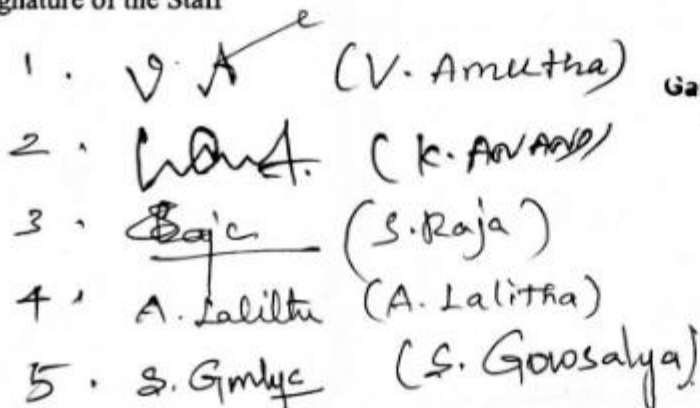 gnature of the Staff
1. V. A (V. Amutha) Ga
2. (K. ANAND)
3. Raja (S. Raja)
4. A. Lalitha (A. Lalitha)
5. S. (S. Gowsalya)